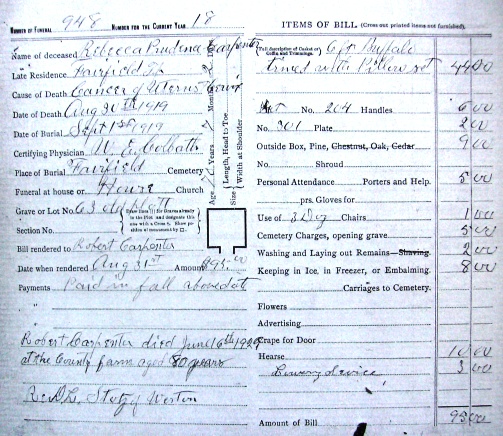 NUMBER OF FUNERAL 948 NUMBER FOR THE CURRENT YEAR 18
Name of deceased Rebecca Prudence Carpenter
Late Residence Fairfield Tp
Cause of Death Cancer of Uterus
Date of Death Aug 30th 1919
Date of Burial Sept 1st 1919
Certifying Physician W. E.
Place of Burial Fairfield Cemetery
Funeral at house or House Church
Grave or Lot No.
Section No.
Age Years Months
Size Length, Head to Toe
Width at Shoulder
Bill rendered to Robert Carpenter
Date when rendered Aug 31st Amount $95.00
Payments Paid in full above date
"
Robert Carpenter died June 6th 1929
at the County farm aged 80 years
ITEMS OF BILL (Cross out printed items not furnished).
Full description of Casket or Coffin and Trimmings.
with Pillow set 44 00
No. 204 Handles 6 00
No. 301 Plate 2 00
Outside Box, Pine, Chestnut, Oak, Cedar 9 00
No. Shroud
Personal Attendance Porters and Help. 5 00
prs. Gloves for
Use of 3 Doz Chairs 1 00
Cemetery Charges, opening grave 5 00
Washing and Laying out Remains—Shaving. 2 00
Keeping in Ice, in Freezer, or Embalming. 8 00
Carriages to Cemetery.
Flowers
Advertising
Crape for Door
Hearse 10 00
3 00
Amount of Bill 95 00